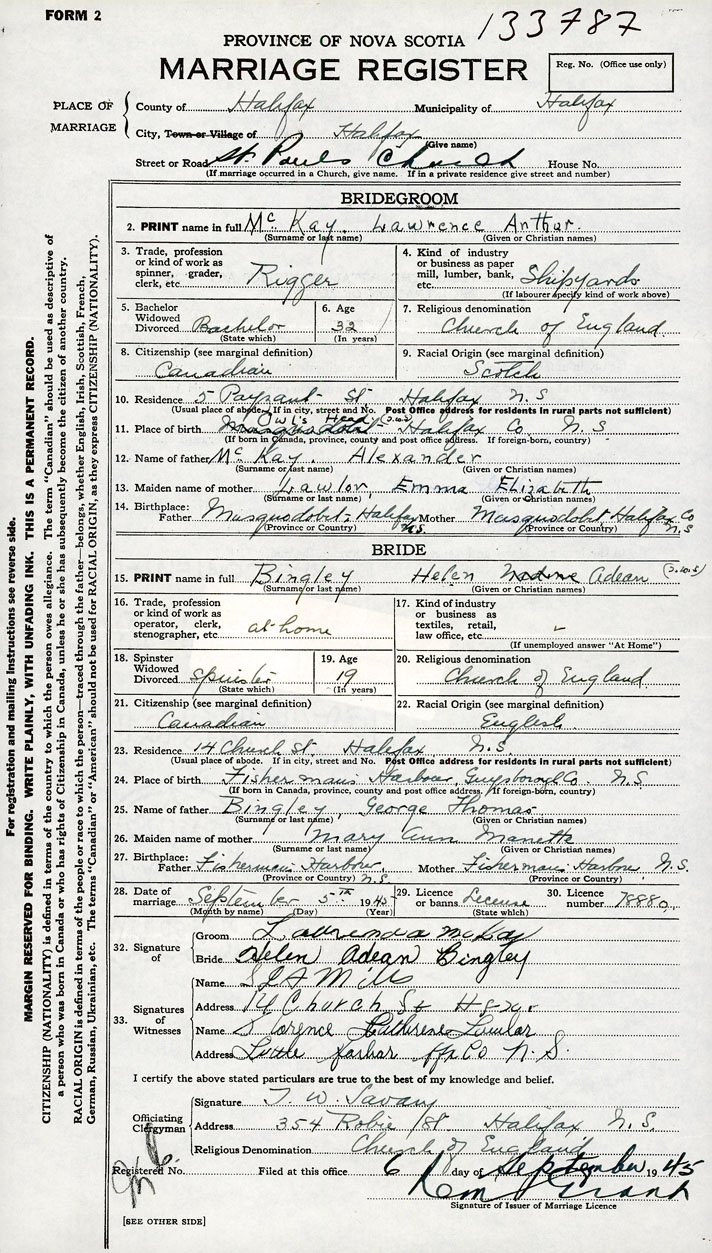 FORM 2
133787
PROVINCE OF NOVA SCOTIA
MARRIAGE REGISTER
Reg. No. (Office use only)
PLACE OF MARRIAGE
County of Halifax Municipality of Halifax
City, Town or Village of Halifax
(Give name)
Street or Road St. Pauls Church House No.
(If marriage occurred in a Church, give name. If in a private residence give street and number)
BRIDEGROOM
2. PRINT name in full Mc Kay. Lawrence Arthur.
(Surname or last name) (Given or Christian names)
3. Trade, profession or kind of work as spinner, grader, clerk, etc. Rigger
4. Kind of industry or business as paper mill, lumber, bank, etc. Shipyards
(If labourer specify kind of work above)
5. Bachelor Widowed Divorced Bachelor
(State which)
6. Age 32
(In years)
7. Religious denomination
Church of England.
8. Citizenship (see marginal definition)
Canadian
9. Racial Origin (see marginal definition)
Scotch
10. Residence 5 Payzant St. Halifax N.S
(Usual place of abode. If in city, street and No. Post Office address for residents in rural parts not sufficient)
Owl's Head
11. Place of birth Halifax Co. N.S
(If born in Canada, province, county and post office address. If foreign-born, country)
12. Name of father Mc Kay. Alexander
(Surname or last name) (Given or Christian names)
13. Maiden name of mother Lawlor, Emma Elizabeth
(Surname or last name) (Given or Christian names)
14. Birthplace: Father Musquodobit, Halifax N.S. Mother Musquodobit, Halifax Co N.S
(Province or Country) (Province or Country)
BRIDE
15. PRINT name in full Bingley Helen Adean
(Surname or last name) (Given or Christian names)
16. Trade, profession or kind of work as operator, clerk, stenographer, etc. at home
17. Kind of industry or business as textiles, retail, law office, etc. -
(If unemployed answer "At Home")
18. Spinster Widowed Divorced Spinster
(State which)
19. Age 19
(In years)
20. Religious denomination
Church of England.
21. Citizenship (see marginal definition)
Canadian
22. Racial Origin (see marginal definition)
English.
23. Residence 14 Church St Halifax N.S
(Usual place of abode. If in city, street and No. Post Office address for residents in rural parts not sufficient)
24. Place of birth Fisherman's Harbour, Guysborough Co. N.S
(If born in Canada, province, county and post office address. If foreign-born, country)
25. Name of father Bingley, George Thomas.
(Surname or last name) (Given or Christian names)
26. Maiden name of mother Mary Ann Manette
(Surname or last name) (Given or Christian names)
27. Birthplace: Father Fisherman's Harbour N.S. Mother Fisherman's Harbour N.S.
(Province or Country) (Province or Country)
28. Date of marriage September 5th 1945
(Month by name) (Day) (Year)
29. Licence or banns License
(State which)
30. Licence number 78880
32. Signature of
Groom McKay
Bride Helen Adean Bingley
33. Signatures of Witnesses
Name Mills
Address 14 Church St Hfx.
Name Florence Lawlor
Address Little Harbor Hfx Co N.S.
I certify the above stated particulars are true to the best of my knowledge and belief.
Officiating Clergyman
Signature T. W. Savary
Address 354 Robie St. Halifax N.S.
Religious Denomination Church of England
Registered No. Filed at this office 6 day of September 1945
Signature of Issuer of Marriage Licence
[SEE OTHER SIDE]
For registration and mailing instructions see reverse side.
MARGIN RESERVED FOR BINDING. WRITE PLAINLY, WITH UNFADING INK. THIS IS A PERMANENT RECORD.
CITIZENSHIP (NATIONALITY) is defined in terms of the country to which the person owes allegiance. The term "Canadian" should be used as descriptive of
a person who was born in Canada or who has rights of Citizenship in Canada, unless he or she has subsequently become the citizen of another country.
RACIAL ORIGIN is defined in terms of the people or race to which the person—traced through the father—belongs, whether English, Irish, Scottish, French,
German, Russian, Ukrainian, etc. The terms "Canadian" or "American" should not be used for RACIAL ORIGIN, as they express CITIZENSHIP (NATIONALITY).